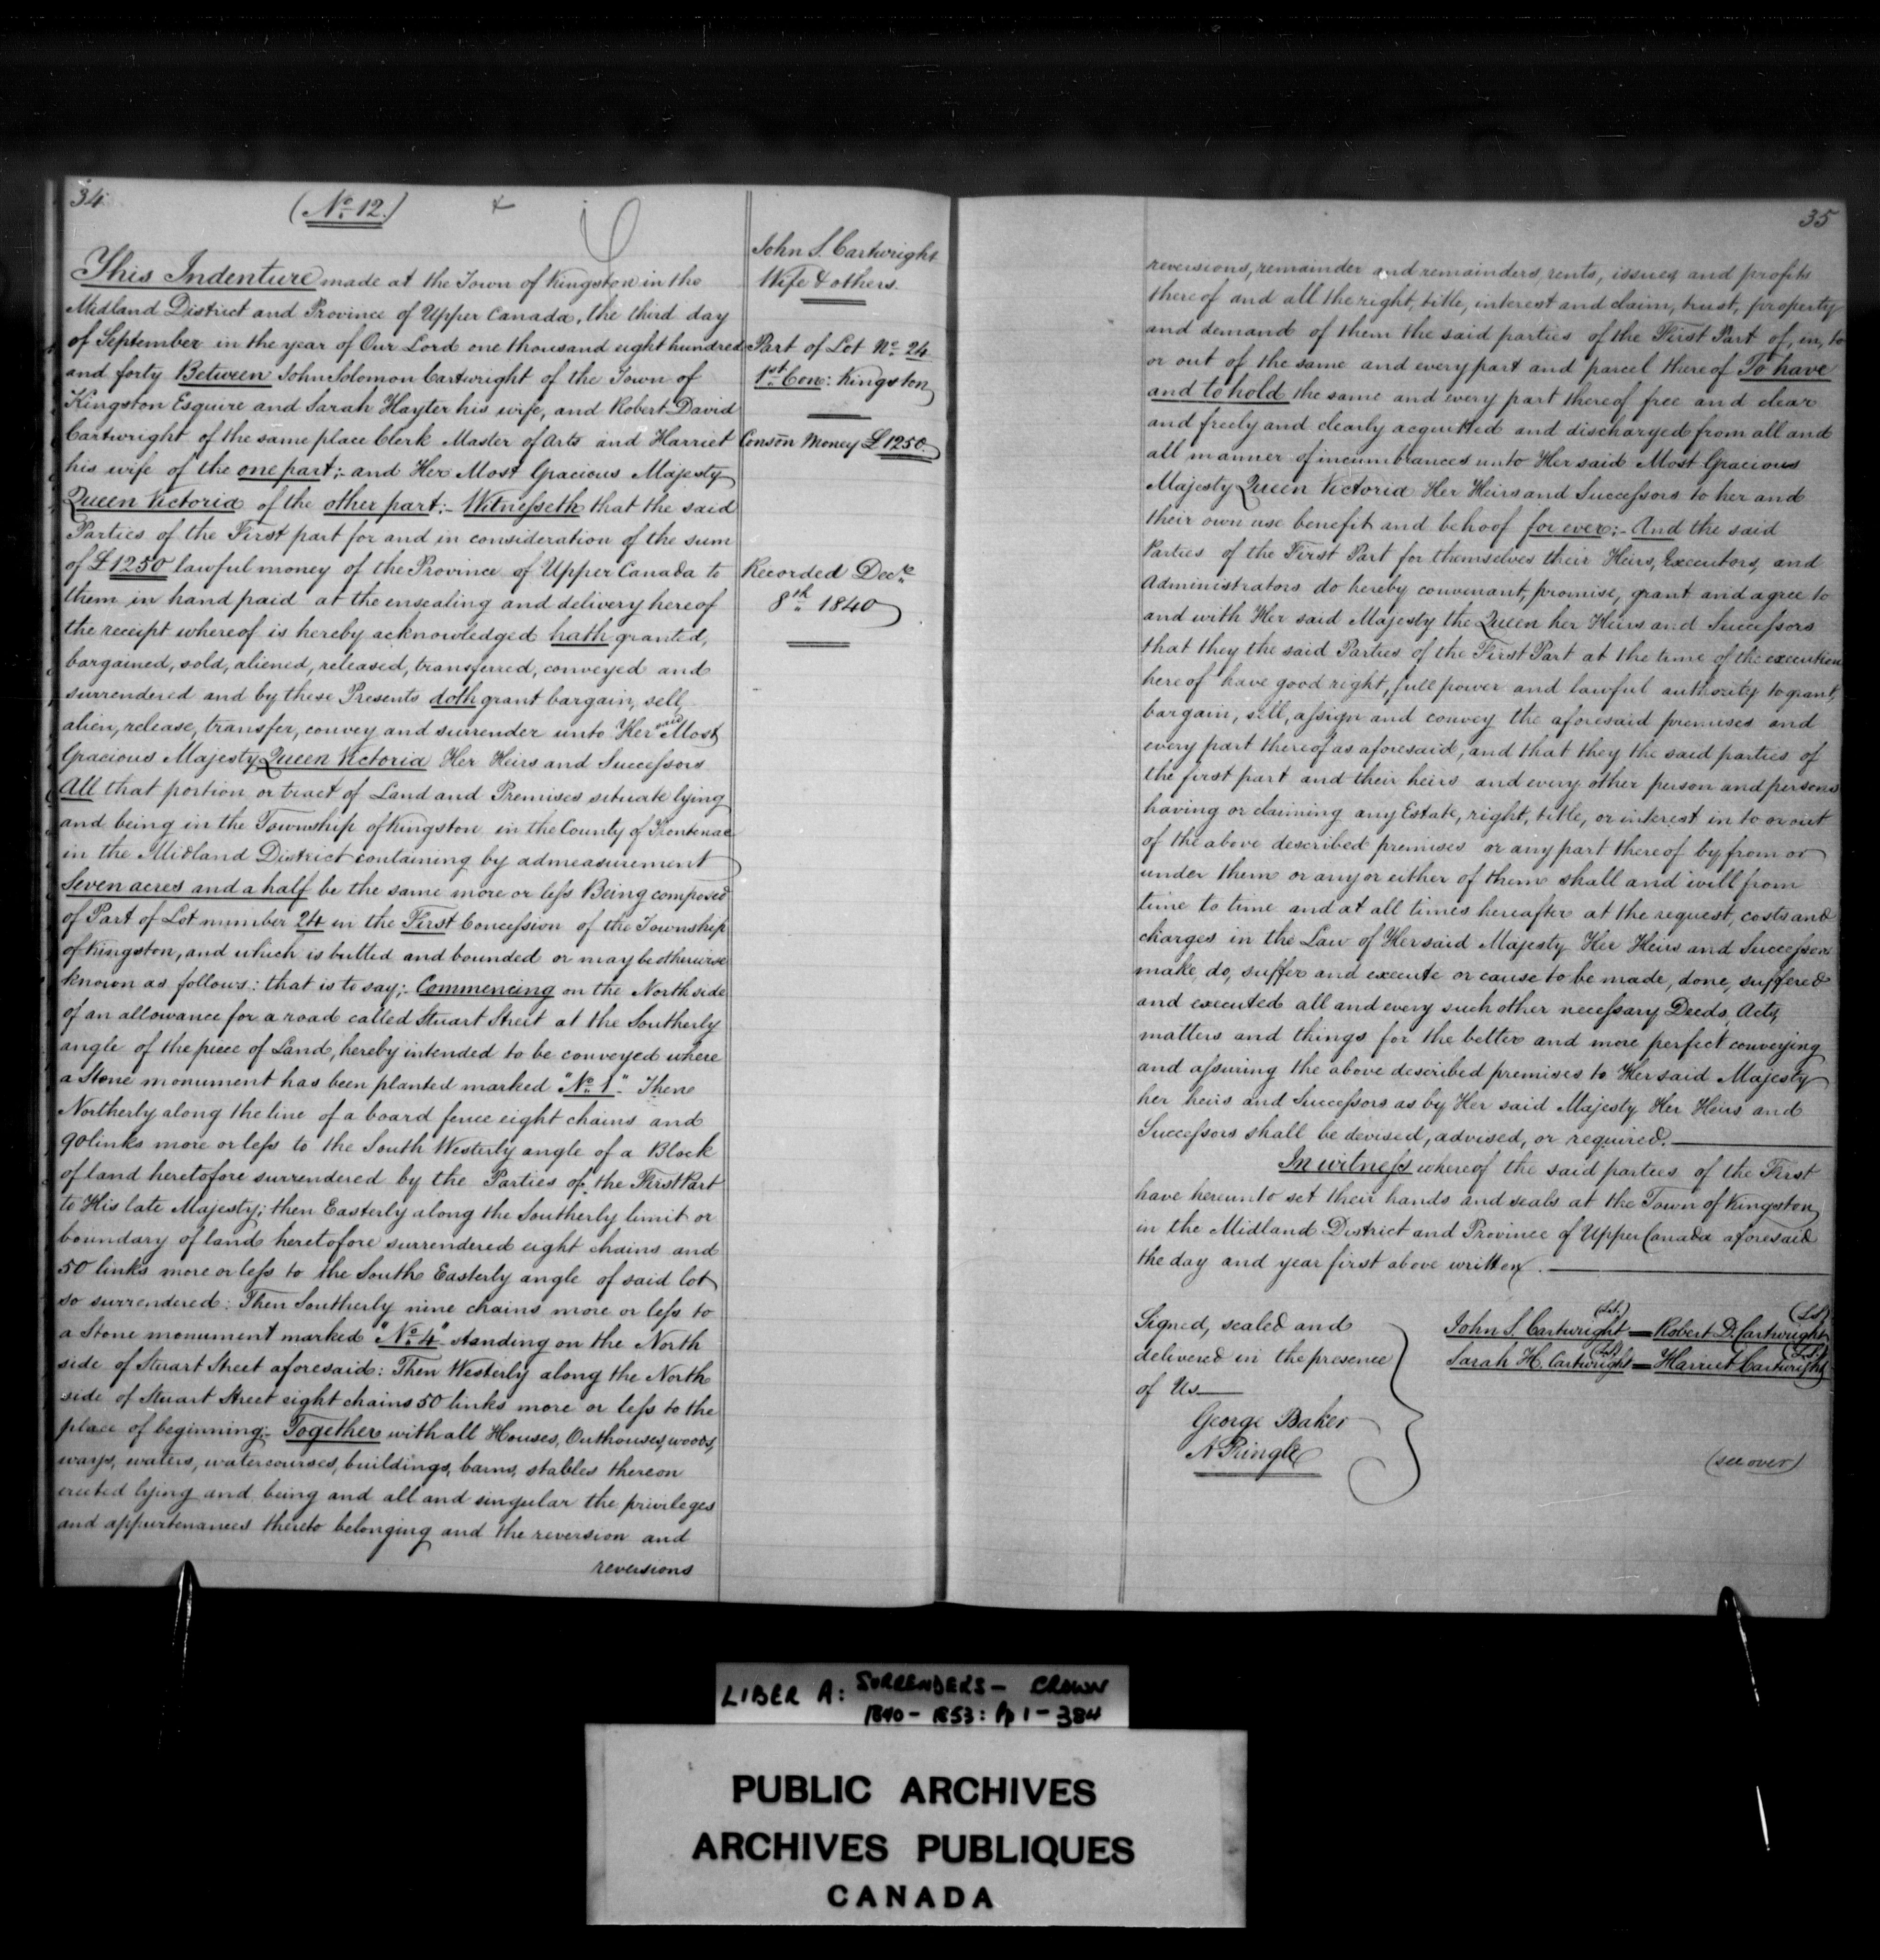 34
(No. 12.)
This Indenture made at the Town of Kingston in the
Midland District and Province of Upper Canada, the third day
of September in the year of Our Lord one thousand eight hundred
and forty Between John Solomon Cartwright of the Town of
Kingston Esquire and Sarah Hayter his wife, and Robert David
Cartwright of the same place Clerk Master of Arts and Harriet
his wife of the one part:- and Her Most Gracious Majesty
Queen Victoria of the other part:- Witnesseth that the said
Parties of the First part for and in consideration of the sum
of £1250 lawful money of the Province of Upper Canada to
them in hand paid at the ensealing and delivery hereof
the receipt whereof is hereby acknowledged hath granted,
bargained, sold, aliened, released, transferred, conveyed and
surrendered and by these Presents doth grant bargain, sell,
alien, release, transfer, convey and surrender unto Her said Most
Gracious Majesty Queen Victoria Her Heirs and Successors
All that portion or tract of Land and Premises situate lying
and being in the Township of Kingston in the County of Frontenac
in the Midland District containing by admeasurement
Seven acres and a half be the same more or less Being composed
of Part of Lot number 24 in the First Concession of the Township
of Kingston, and which is butted and bounded or may be otherwise
known as follows: that is to say;- Commencing on the North side
of an allowance for a road called Stuart Street at the Southerly
angle of the piece of Land, hereby intended to be conveyed where
a Stone monument has been planted marked "No. 1"- Thene
Northerly along the line of a board fence eight chains and
90 links more or less to the South Westerly angle of a Block
of land heretofore surrendered by the Parties of the First Part
to His late Majesty; then Easterly along the Southerly limit or
boundary of land heretofore surrendered eight chains and
50 links more or less to the South Easterly angle of said lot
so surrendered: Then Southerly nine chains more or less to
a Stone monument marked "No. 4" standing on the North
side of Stuart Street aforesaid: Then Westerly along the North
side of Stuart Street eight chains 50 links more or less to the
place of beginning;- Together with all Houses, Outhouses, woods,
ways, waters, watercourses, buildings, barns, stables thereon
erected lying and being and all and singular the privileges
and appurtenances thereto belonging and the reversion and
reversions
John S. Cartwright
Wife & others.
Part of Lot No. 24
1st Con: Kingston
Conson Money £1250.
Recorded Decr.
8th 1840
35
reversions, remainder and remainders, rents, issues and profits
thereof and all the right, title, interest and claim, trust, property
and demand of them the said parties of the First Part of, in, to
or out of the same and every part and parcel thereof To have
and to hold the same and every part thereof free and clear
and freely and clearly acquitted and discharged from all and
all manner of incumbrances unto Her said Most Gracious
Majesty Queen Victoria Her Heirs and Successors to her and
their own use benefit and behoof for ever:- And the said
Parties of the First Part for themselves their Heirs, Executors, and
Administrators do hereby convenant, promise, grant and agree to
and with Her said Majesty the Queen her Heirs and Successors
that they the said Parties of the First Part at the time of the execution
hereof have good right, full power and lawful authority to grant,
bargain, sell, assign and convey the aforesaid premises and
every part thereof as aforesaid, and that they the said parties of
the first part and their heirs and every other person and persons
having or claiming any Estate, right, title, or interest in to or out
of the above described premises or any part thereof by from or
under them or any or either of them shall and will from
time to time and at all times hereafter at the request, costs and
charges in the Law of Her said Majesty Her Heirs and Successors
make, do, suffer and execute or cause to be made, done, suffered
and executed all and every such other necessary Deeds, Acts,
matters and things for the better and more perfect conveying
and assuring the above described premises to Her said Majesty
her heirs and Successors as by Her said Majesty Her Heirs and
Successors shall be devised, advised, or required.
In witness whereof the said parties of the First
have hereunto set their hands and seals at the Town of Kingston
in the Midland District and Province of Upper Canada aforesaid
the day and year first above written.
Signed, sealed and
delivered in the presence
of Us
George Baker
A Pringle
John S. Cartwright (L.S.) = Robert D. Cartwright (L.S)
Sarah H. Cartwright (L.S) = Harriet Cartwright (L.S)
(see over)
LIBER A: SURRENDERS - CROWN
1840 - 1853: Pp 1 - 384
PUBLIC ARCHIVES
ARCHIVES PUBLIQUES
CANADA